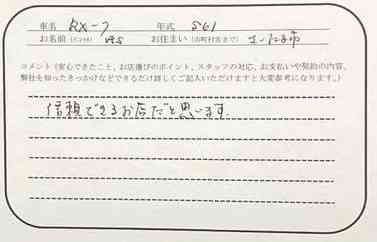 車名 RX-7 年式 S61
お名前（イニシャル） お住まい（市町村名まで） さいたま市
コメント（安心できたこと、お店選びのポイント、スタッフの対応、お支払いや契約の内容、
弊社を知ったきっかけなどできるだけ詳しくご記入いただけますと大変参考になります。）
信頼できるお店だと思います。